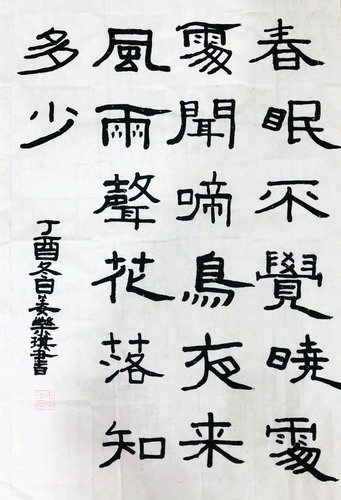 春眠不覺曉處
處聞啼鳥夜来
風雨聲花落知
多少
丁酉冬日姜樂琪書